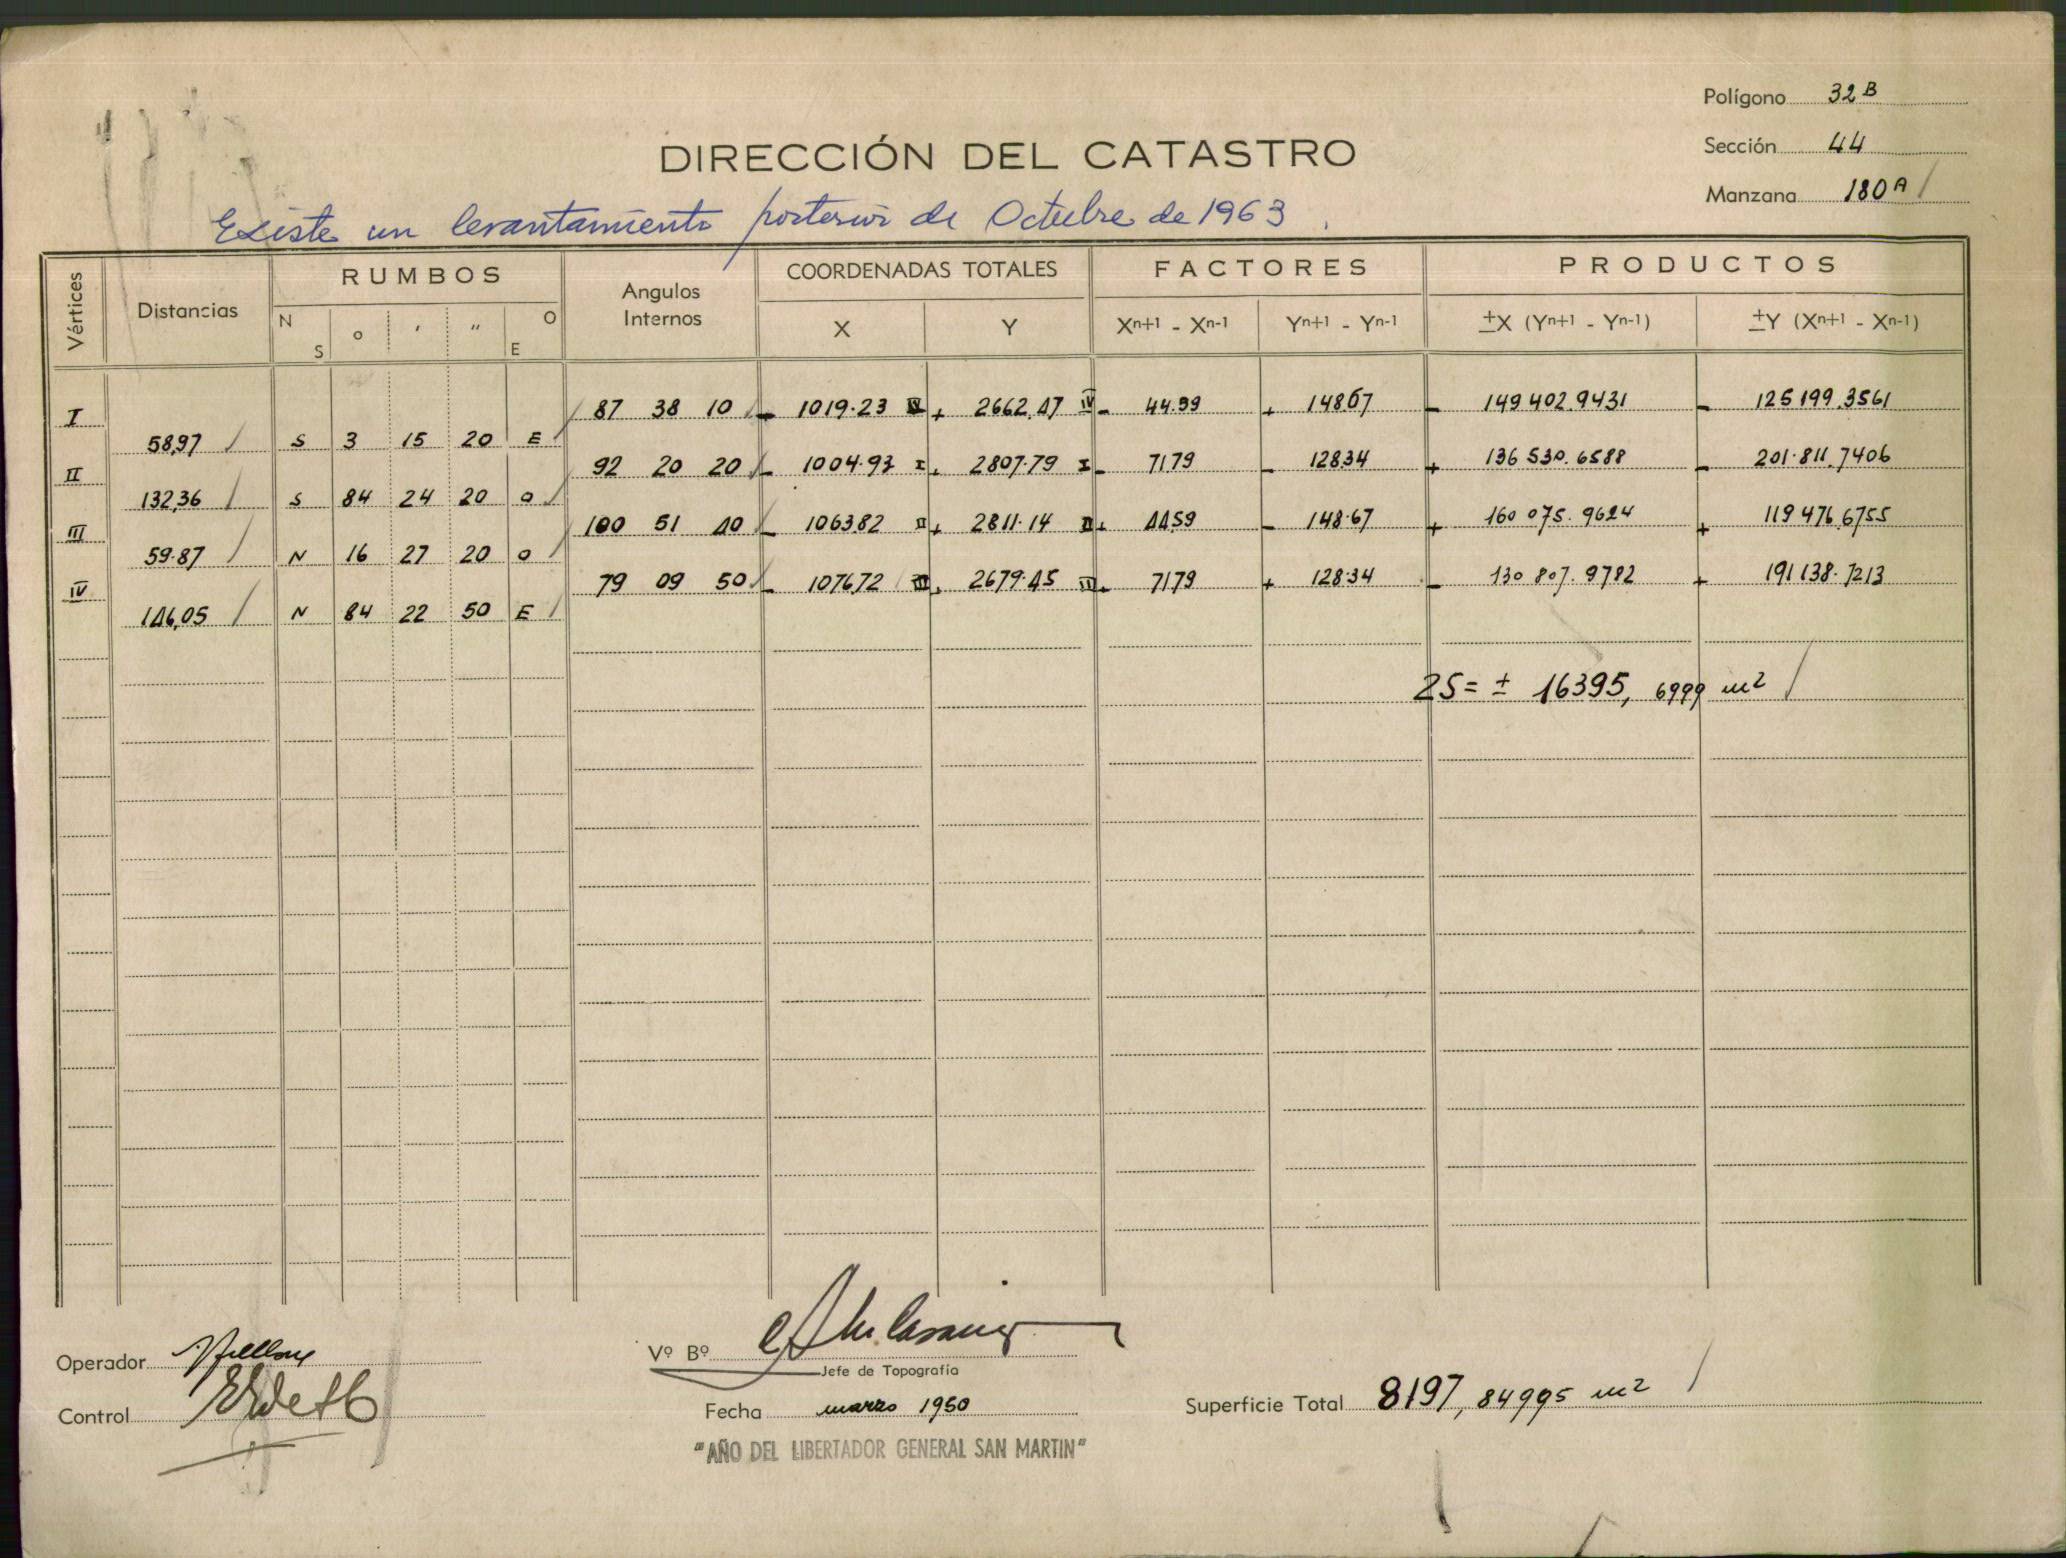 Polígono 32 B
Sección 44
Manzana 180 A /
DIRECCIÓN DEL CATASTRO
Existe un levantamiento posterior de Octubre de 1963.
Vértices Distancias RUMBOS Angulos Internos COORDENADAS TOTALES FACTORES PRODUCTOS
N S o ' " O E X Y Xn+1 - Xn-1 Yn+1 - Yn-1 ±X (Yn+1 - Yn-1) ±Y (Xn+1 - Xn-1)
I / 87 38 10 / - 1019.23 IV + 2662,47 IV - 44.59 + 148.67 - 149 402.9431 - 125 199.3561
58,97 / S 3 15 20 E /
II 92 20 20 / - 1004.97 I + 2807.79 I - 7179 - 128.34 + 136 530.6588 - 201.811.7406
132,36 / S 84 24 20 O /
III 100 51 40 / - 1063.82 II + 2811.14 II + 4459 - 148.67 + 160 075.9624 + 119 476.6755
59.87 / N 16 27 20 O /
IV 79 09 50 / - 1076,72 III + 2679.45 III + 7179 + 128.34 - 130 807.9782 + 191 138.7213
146,05 / N 84 22 50 E /
2S = ± 16395, 6999 m2 /
Operador
Control
Vº Bº
Jefe de Topografía
Fecha marzo 1950
Superficie Total 8197,84995 m2 /
"AÑO DEL LIBERTADOR GENERAL SAN MARTIN"